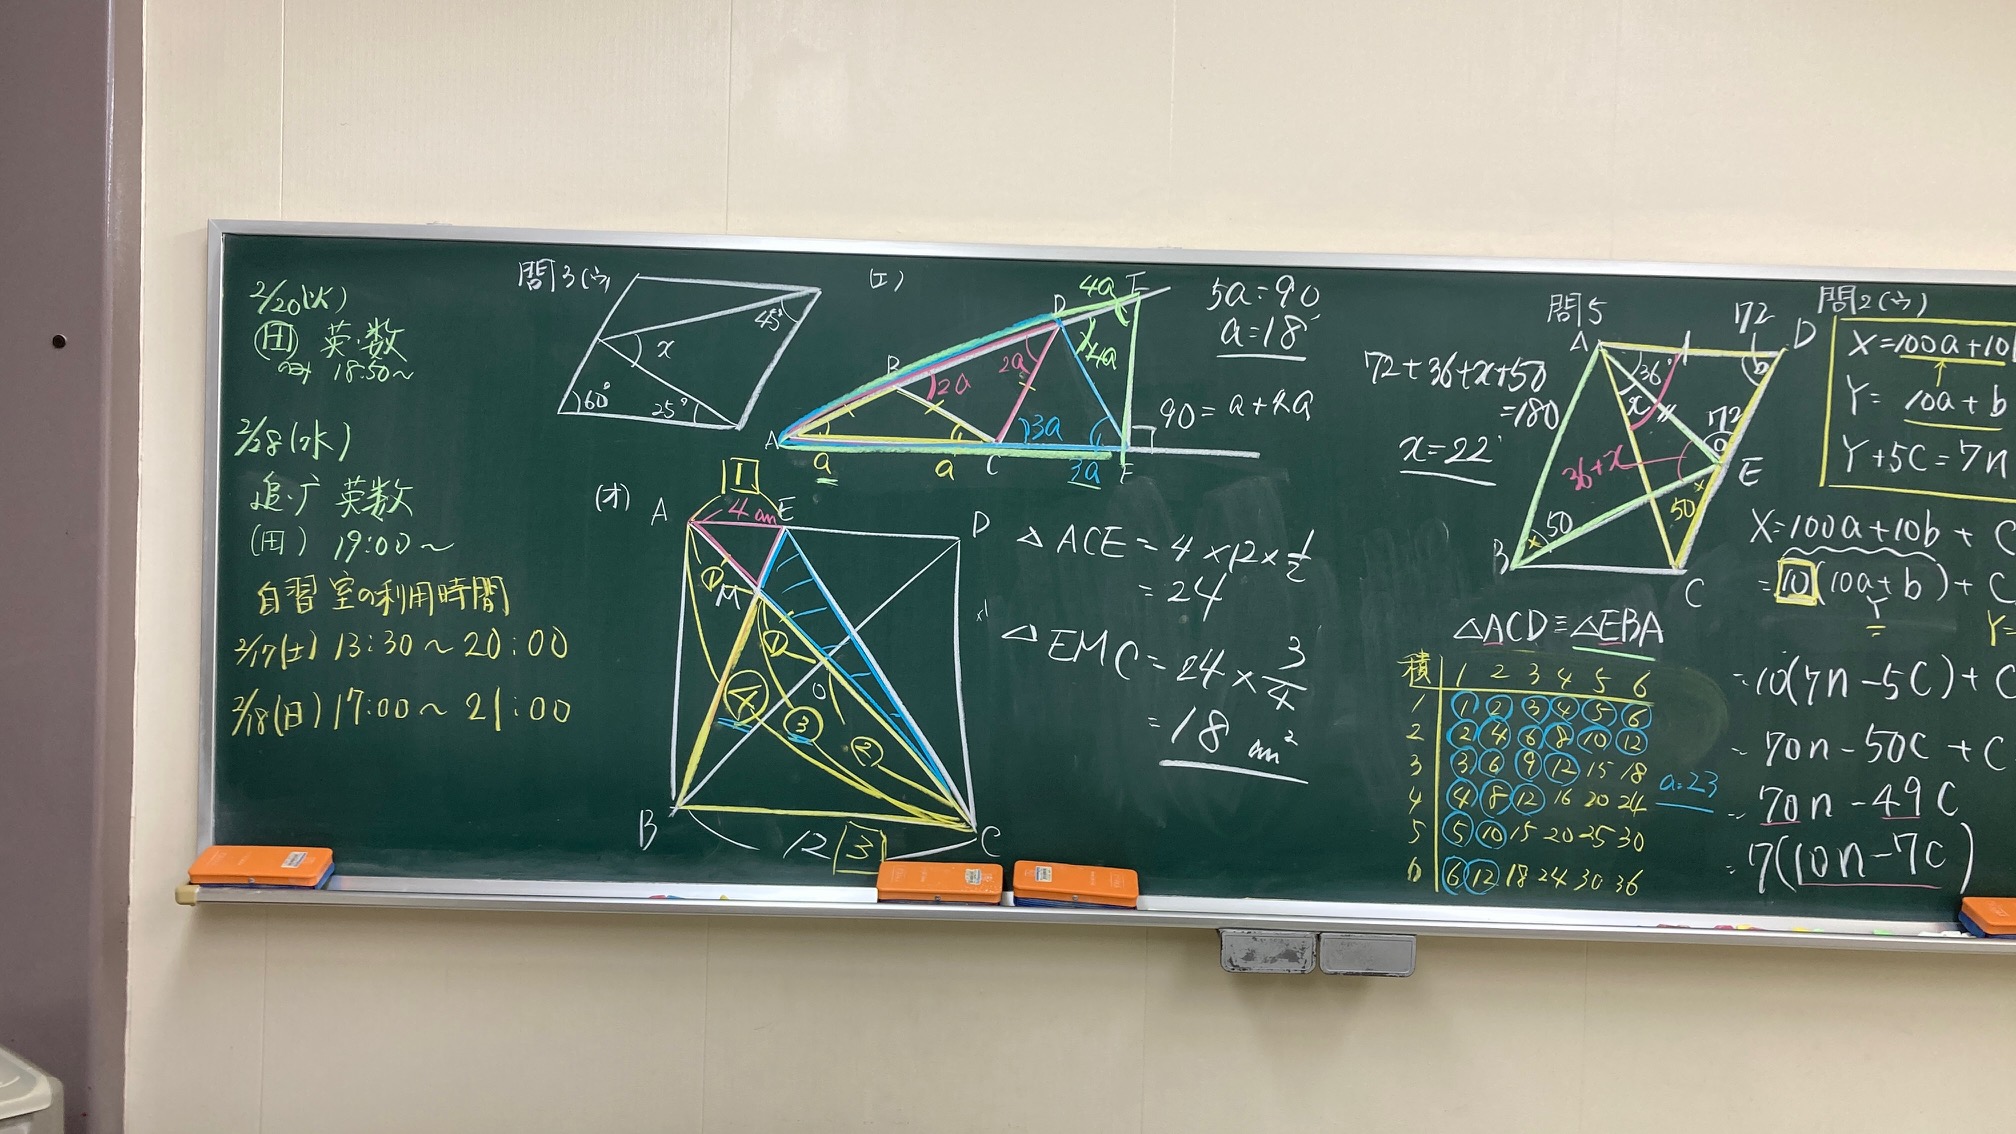 2/20(火)
(田) 英・数
18:50~
2/28(水)
追・广 英数
(田) 19:00~
自習室の利用時間
2/17(土) 13:30~20:00
2/18(日) 17:00~21:00
問3(ウ)
45°
x
60°
25°
(エ)
A
B
C
D
E
F
a
a
2a
2a
3a
3a
4a
4a
5a=90
a=18°
90=a+4a
(オ)
1
4cm
A
E
D
M
①
①
O
④
③
②
B
C
12
3
△ACE=4×12×1/2
=24
△EMC=24×3/4
=18cm²
問5
72+36+x+50
=180
x=22°
A
D
72
36°
x
b
72
36+x
E
50
50
B
C
△ACD≡△EBA
積 1 2 3 4 5 6
1 ① ② ③ ④ ⑤ ⑥
2 ② ④ ⑥ ⑧ ⑩ ⑫
3 ③ ⑥ ⑨ ⑫ 15 18
4 ④ ⑧ ⑫ 16 20 24
5 ⑤ ⑩ 15 20 25 30
6 ⑥ ⑫ 18 24 30 36
a=23
問2(ウ)
X=100a+10
Y=10a+b
Y+5C=7n
X=100a+10b+C
=10(10a+b)+C
Y
Y=
=10(7n-5C)+C
=70n-50C+C
=70n-49C
=7(10n-7C)